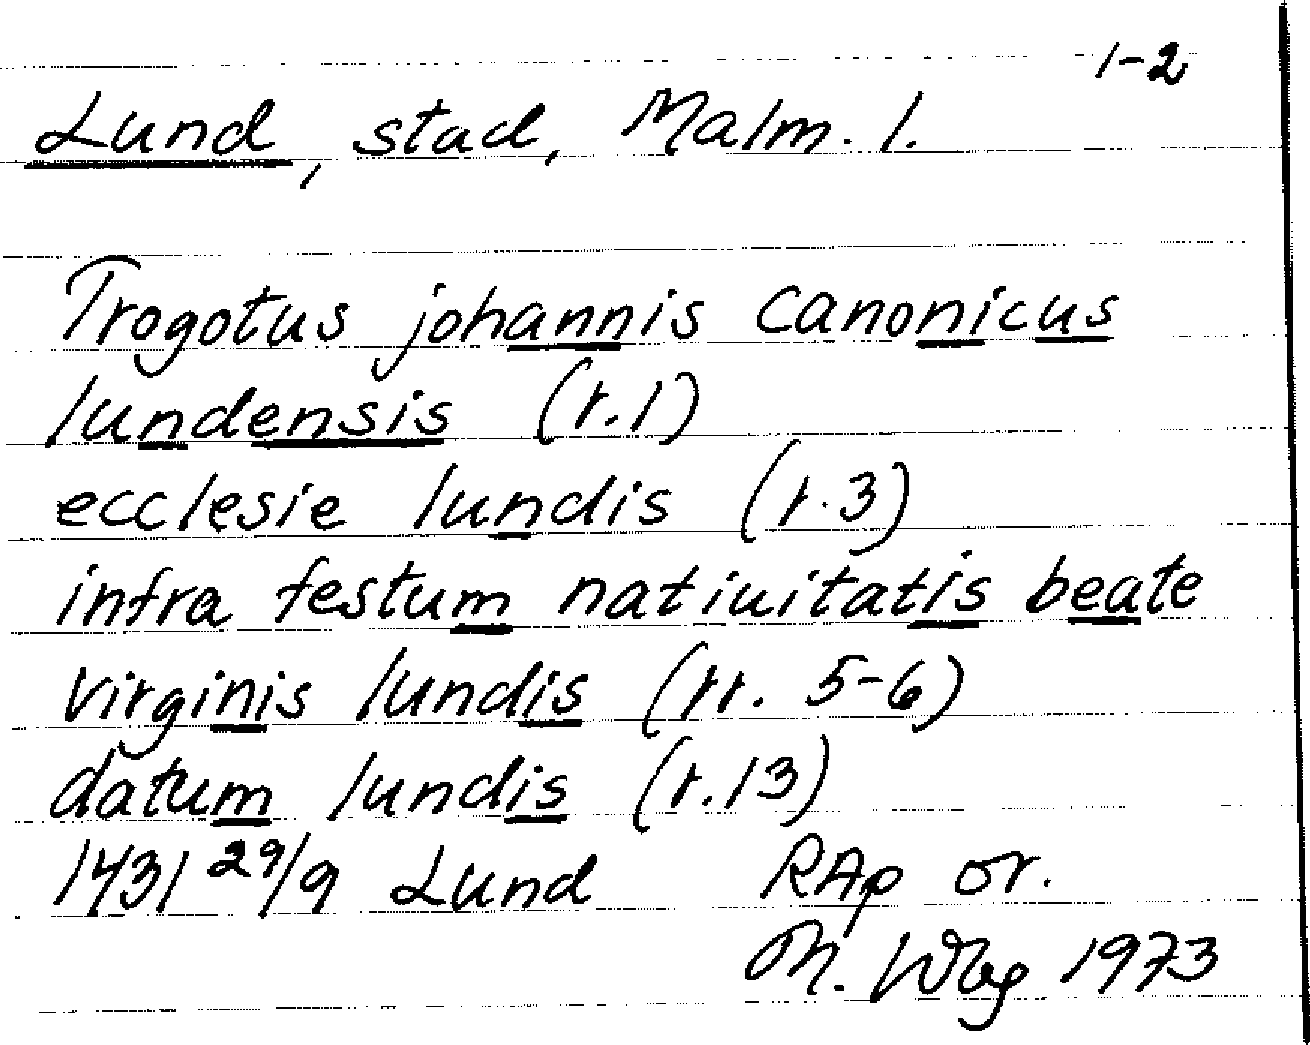 1-2
Lund, stad, Malm. l.
Trogotus johannis canonicus
lundensis (r.1)
ecclesie lundis (r.3)
infra festum natiuitatis beate
virginis lundis (rr. 5-6)
datum lundis (r.13)
1431 29/9 Lund RAp or.
1973